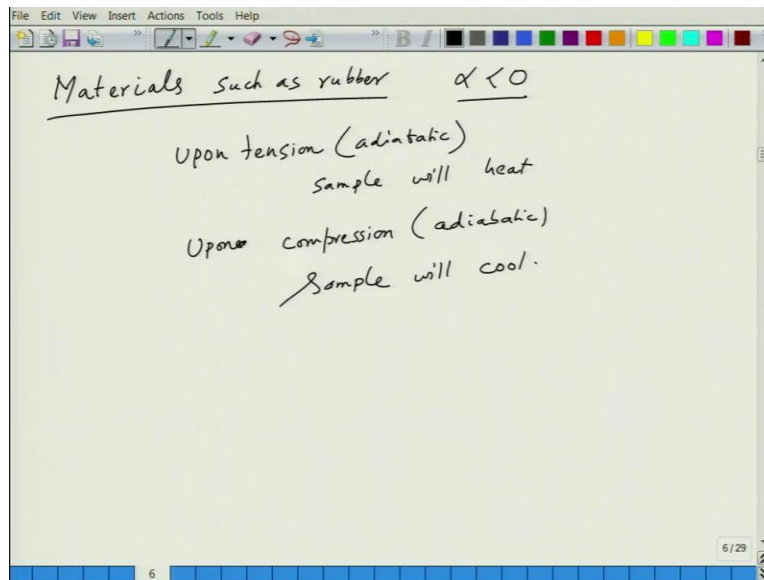 File Edit View Insert Actions Tools Help
Materials such as rubber α < 0
Upon tension (adiatatic)
sample will heat
Upon compression (adiabatic)
Sample will cool.
6/29
6